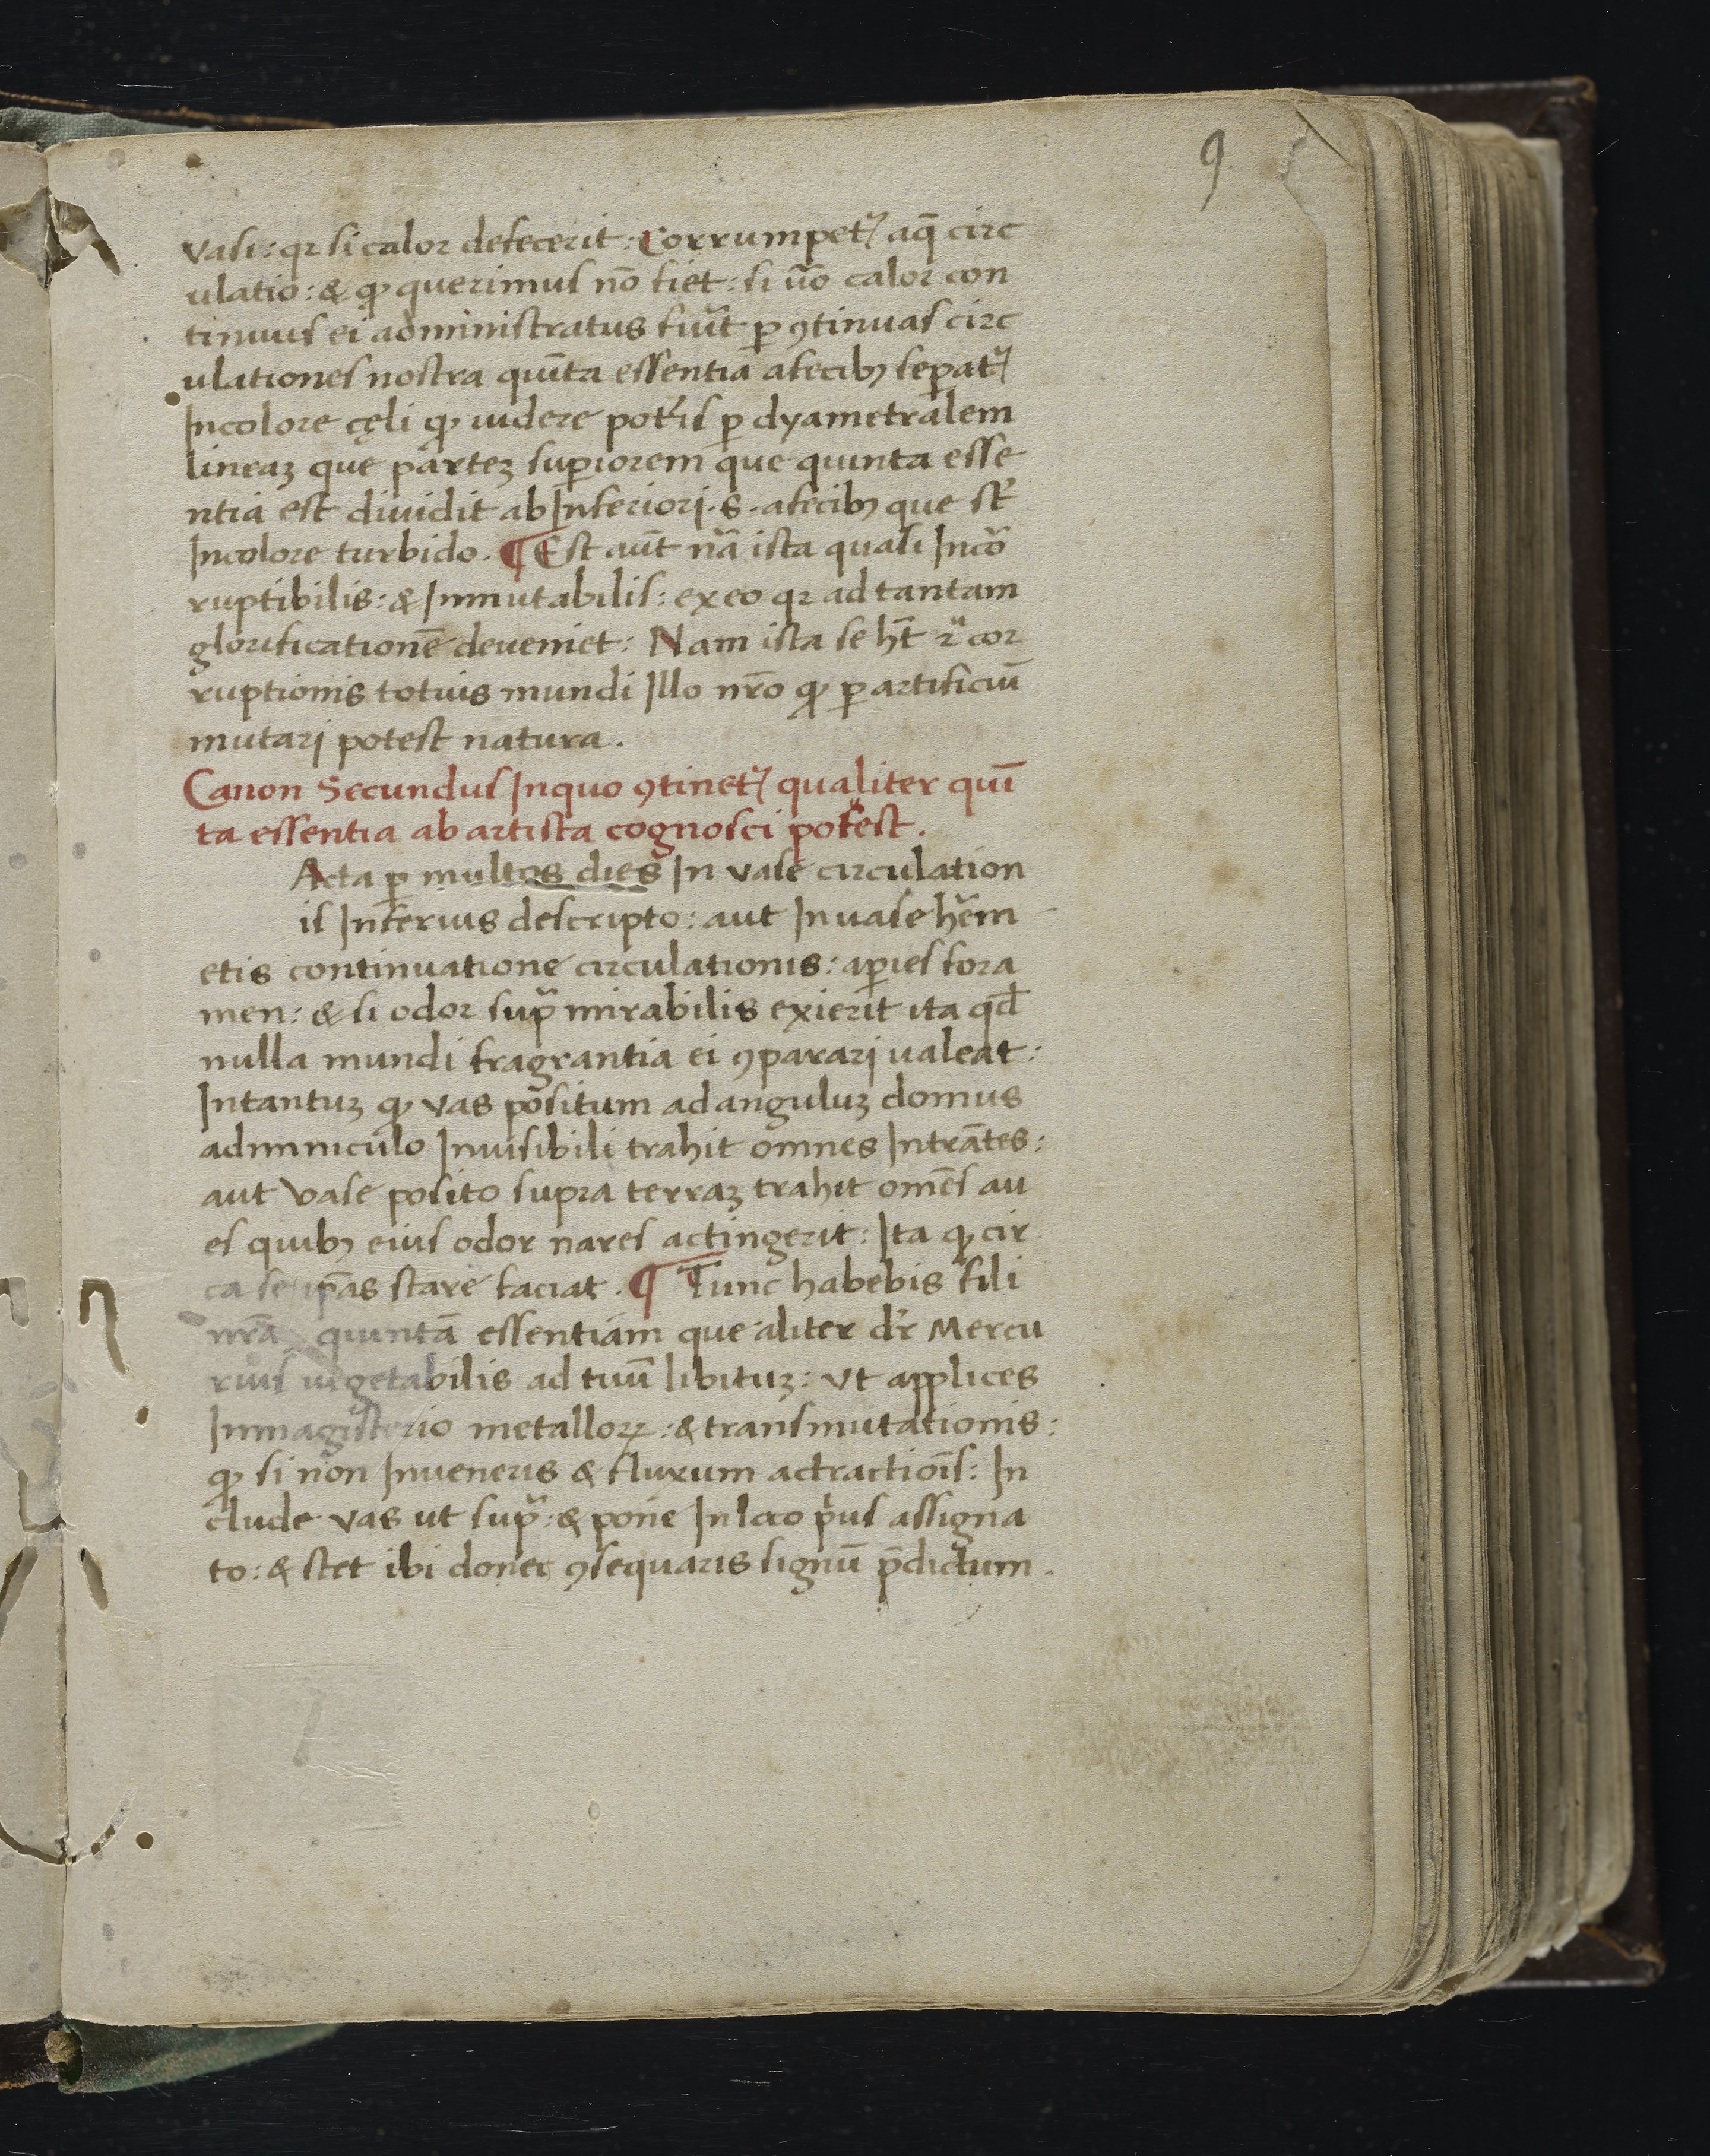 9
vasi: qr si calor defecerit: Corrumpetꝰ aq̄ circ
ulatio: & qꝫ querimus nō fiet: si ūo calor con
tinuus ei administratus fuīt ꝑ ꝯtinuas circ
ulationes nostra quīta essentia afecibꝫ seꝑatꝰ
Incolore cęli qꝫ uidere potꝰis ꝑ dyametralem
lineaꝫ que parteꝫ suꝑiorem que quinta esse
ntia est diuidit ab Inferiori .s. afecibꝫ que st̄
Incolore turbido. ¶ Est aūt nā ista quasi Incō
ruptibilis: & Inmutabilis: ex eo qr ad tantam
glorificationē deueniet: Nam ista se ht̄ rᵃ cor
ruptionis totius mundi Illo nr̄o qꝫ ꝑ artificiū
mutari potest natura.
Canon Secundus Inquo ꝯtinetꝰ qualiter quī
ta essentia ab artista cognosci potest.
Acta ꝑ multos dies In vase circulation
is Inferius descripto: aut Inuase hēm
etis continuatione circulationis: aꝑies fora
men: & si odor supᵃ mirabilis exierit ita qd̄
nulla mundi fragrantia ei ꝯparari ualeat:
Intantuꝫ qꝫ vas positum ad anguluꝫ domus
adminiculo Inuisibili trahit omnes Intrātes:
aut vase posito supra terraꝫ trahit omēs au
es quibꝫ eius odor nares actingerit: Ita qꝫ cir
ca se ip̄as stare faciat. ¶ Tunc habebis fili
nr̄ā quintā essentiam que aliter dr̄ Mercu
rius uegetabilis ad tuū libituꝫ: vt applices
Inmagisterio metalloꝝ: & transmutationis:
qꝫ si non Inueneris & fluxum actractiōis: In
clude vas ut supᵃ: & pone In loco pⁱus assigna
to: & stet ibi donec ꝯsequaris signū p̄dictum.